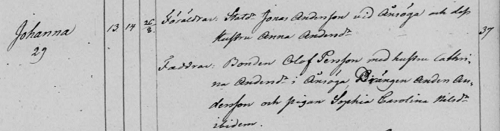 Johanna 13 14 26/8 Föräldrar. Statd. Jonas Andersson vid Ånsöga och dess 37
29 Hustru Anna Andersd.
Faddrar. Bonden Olof Persson med hustru Cathri-
na Andersd. i Ånsöga Drängen Anders An-
dersson och pigan Sophia Carolina Nilsd.
ibidem.